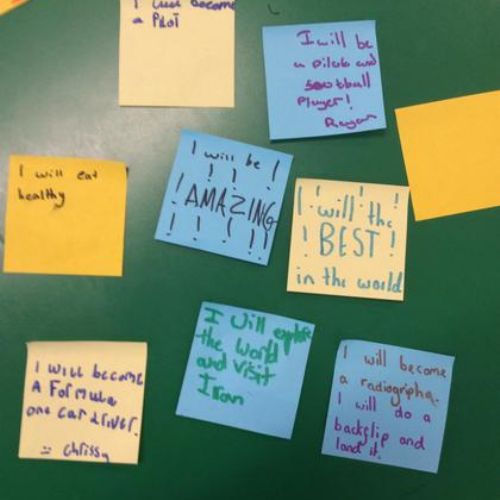 I will become
a Pilot
I will be
a pilot and
football
player!
Rayan
I will eat
healthy
I will be !
! ! !
! AMAZING
! ! ! ! !
! ! ! !
I will the
! BEST !
in the world
I will become
A Formula
one car driver.
= Chrissy
I Will explore
the world
and visit
Iran
I will become
a radiogripha.
I will do a
backflip and
land it.